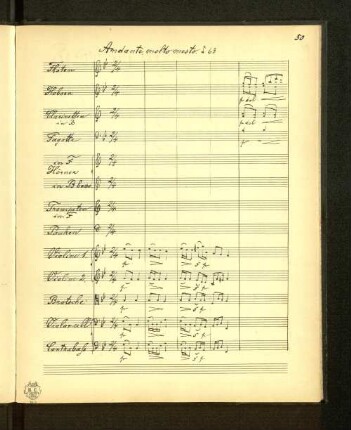 50
Andante molto mesto ♩ 63
Flöten
Hoboen
Clarinetten
in B
Fagotte
in F
Hörner
in B basso
Trompeten
in F
Pauken
Violine 1.
Violine 2.
Bratsche
Violoncell
Contrabass